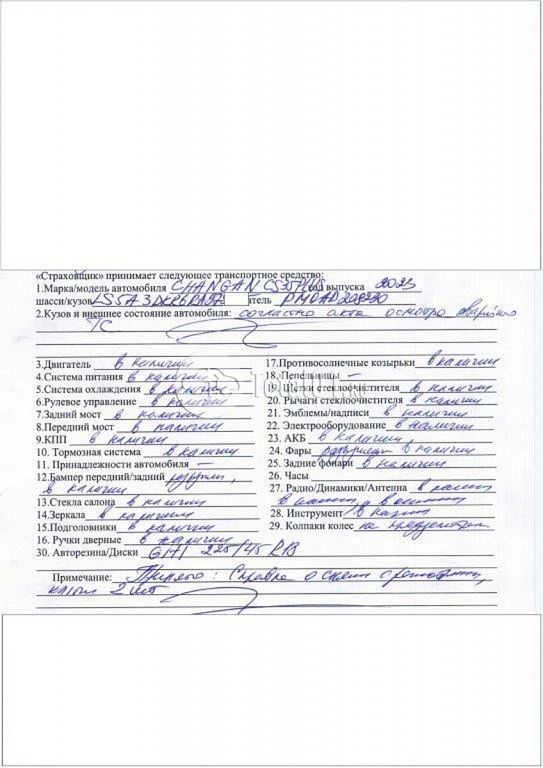 «Страховщик» принимает следующее транспортное средство:
1.Марка/модель автомобиля CHANGAN CS35PLUS год выпуска 2023
шасси/кузов LS5A3DKR6RA97 атель PM0AD208230
2.Кузов и внешнее состояние автомобиля: согласно акта осмотра аварийного
ТС
3.Двигатель в наличии
4.Система питания в наличии
5.Система охлаждения в наличии
6.Рулевое управление в наличии
7.Задний мост в наличии
8.Передний мост в наличии
9.КПП в наличии
10. Тормозная система в наличии
11. Принадлежности автомобиля –
12.Бампер передний/задний
в наличии
13.Стекла салона в наличии
14.Зеркала в наличии
15.Подголовники в наличии
16. Ручки дверные в наличии
17.Противосолнечные козырьки в наличии
18. Пепельницы –
19. Щетки стеклоочистителя в наличии
20. Рычаги стеклоочистителя в наличии
21. Эмблемы/надписи в наличии
22. Электрооборудование в наличии
23. АКБ в наличии
24. Фары в наличии
25. Задние фонари в наличии
26. Часы
27. Радио/Динамики/Антенна в налич
28. Инструмент в налич
29. Колпаки колес не предусмотрен
30. Авторезина/Диски GITI 225/45 R18
Примечание: Принято: Справка о снятии с регистрации,
ключи 2 шт